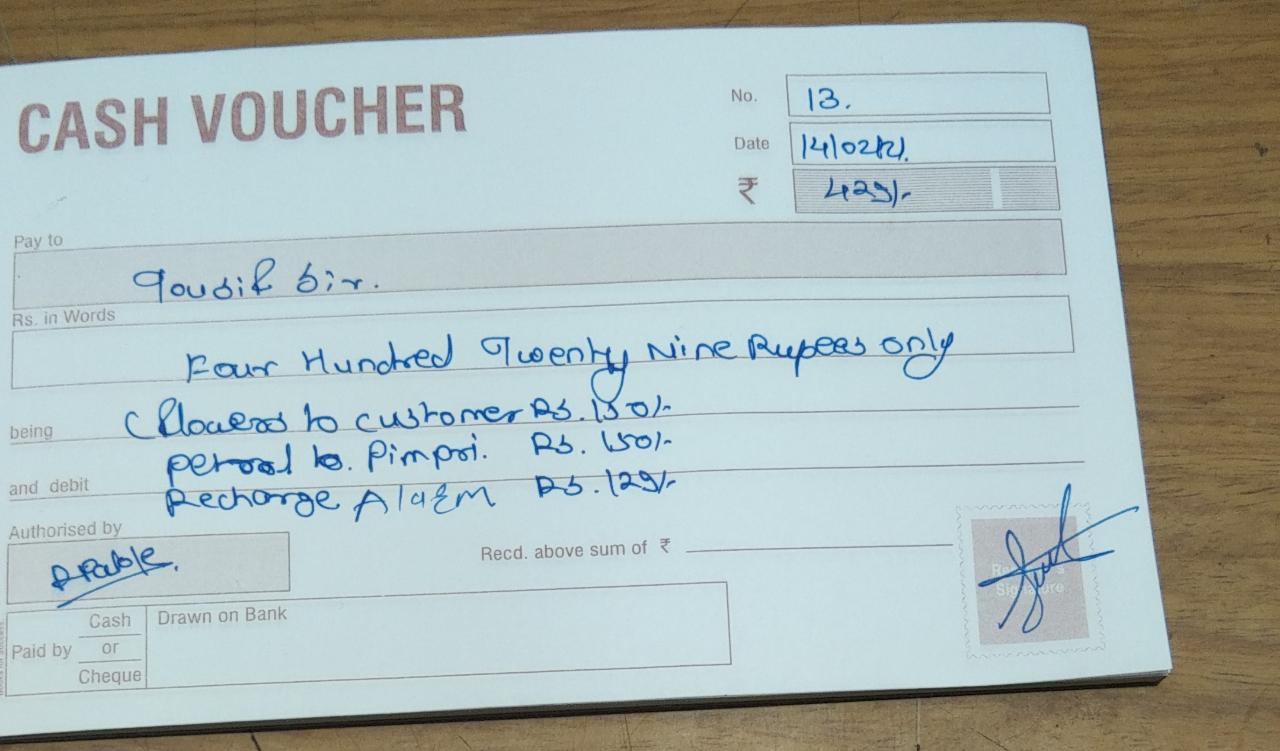 CASH VOUCHER
No. 13.
Date 14/02/21.
₹ 429/-
Pay to
Tousif Sir.
Rs. in Words
Four Hundred Twenty Nine Rupees only
being (Flowers to customer Rs. 150/-
Petrool to. Pimpri. Rs. 150/-
and debit
Recharge Alarm Rs. 129/-
Authorised by
Recd. above sum of ₹
Paid by Cash or Cheque
Drawn on Bank
Signature